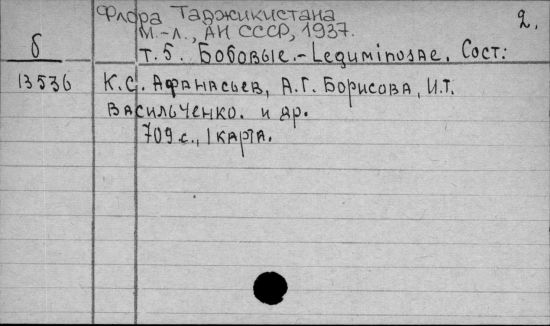 Флора Таджикистана 2.
М.-Л., АН СССР, 1937.
б т. 5. Бобовые.-Leguminosae. Сост:
13536 К.С. Афанасьев, А.Г. Борисова, И.Т.
Васильченко. и др.
709 с., 1 карта.